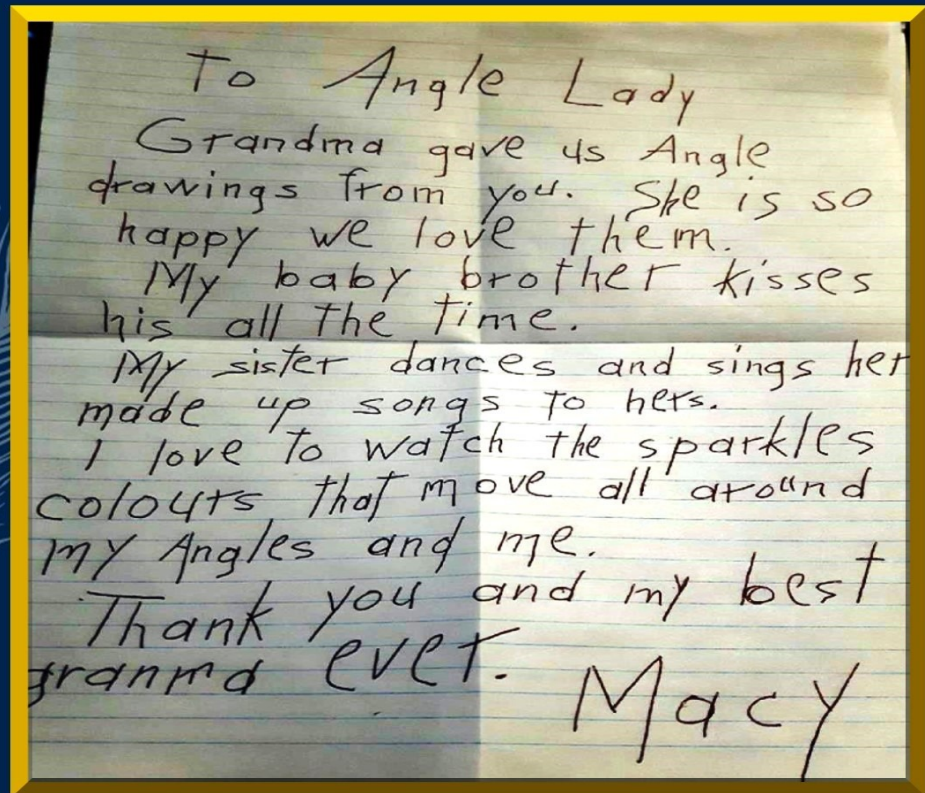 To Angle Lady
Grandma gave us Angle
drawings from you. She is so
happy we love them.
My baby brother kisses
his all the time.
My sister dances and sings her
made up songs to hers.
I love to watch the sparkles
colours that move all around
my Angles and me.
Thank you and my best
granma ever.
Macy